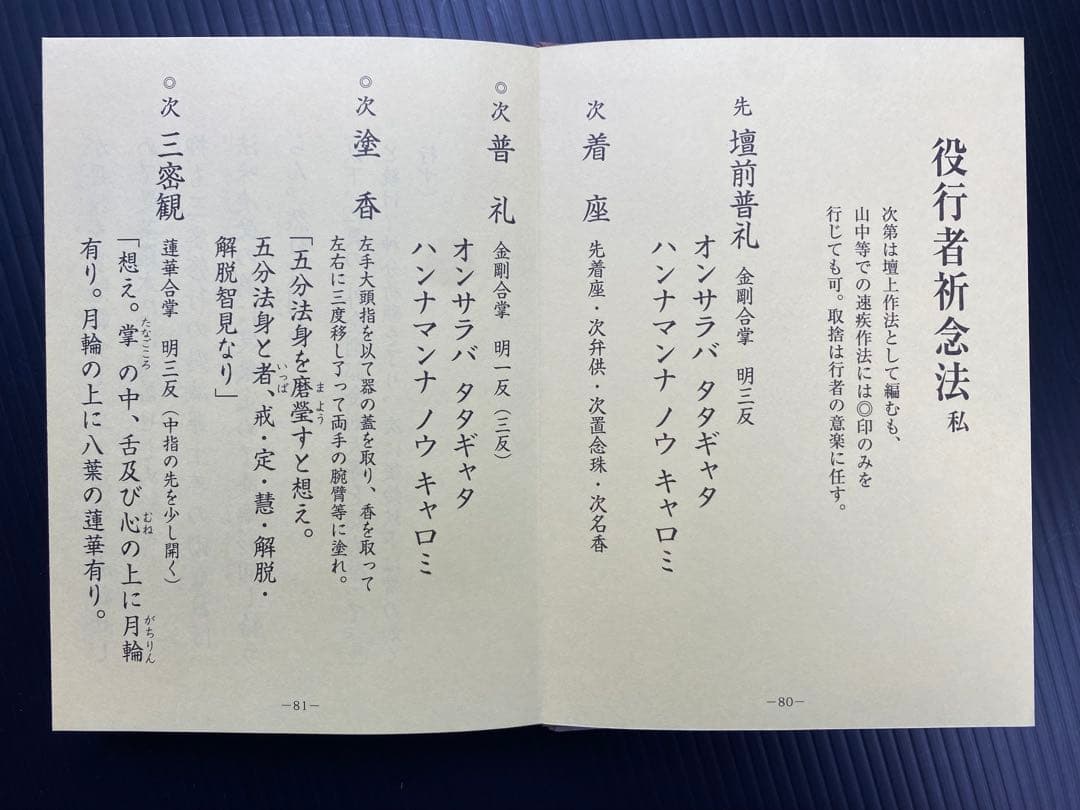 役行者祈念法 私
次第は壇上作法として編むも、
山中等での速疾作法には◎印のみを
行じても可。取捨は行者の意楽に任す。
先 壇前普礼 金剛合掌 明三反
オンサラバ タタギャタ
ハンナマンナ ノウ キャロミ
次 着座 先着座・次弁供・次置念珠・次名香
―80―
◎次 普礼 金剛合掌 明一反（三反）
オンサラバ タタギャタ
ハンナマンナ ノウ キャロミ
◎次 塗香 左手大頭指を以て器の蓋を取り、香を取って
左右に三度移し了って両手の腕臂等に塗れ。
「五分法身を磨瑩すと想え。
まよう
五分法身と者、戒・定・慧・解脱・
いっぱ
解脱智見なり」
◎次 三密観 蓮華合掌 明三反（中指の先を少し開く）
「想え。掌の中、舌及び心の上に月輪
たなごころ むね がちりん
有り。月輪の上に八葉の蓮華有り。
―81―